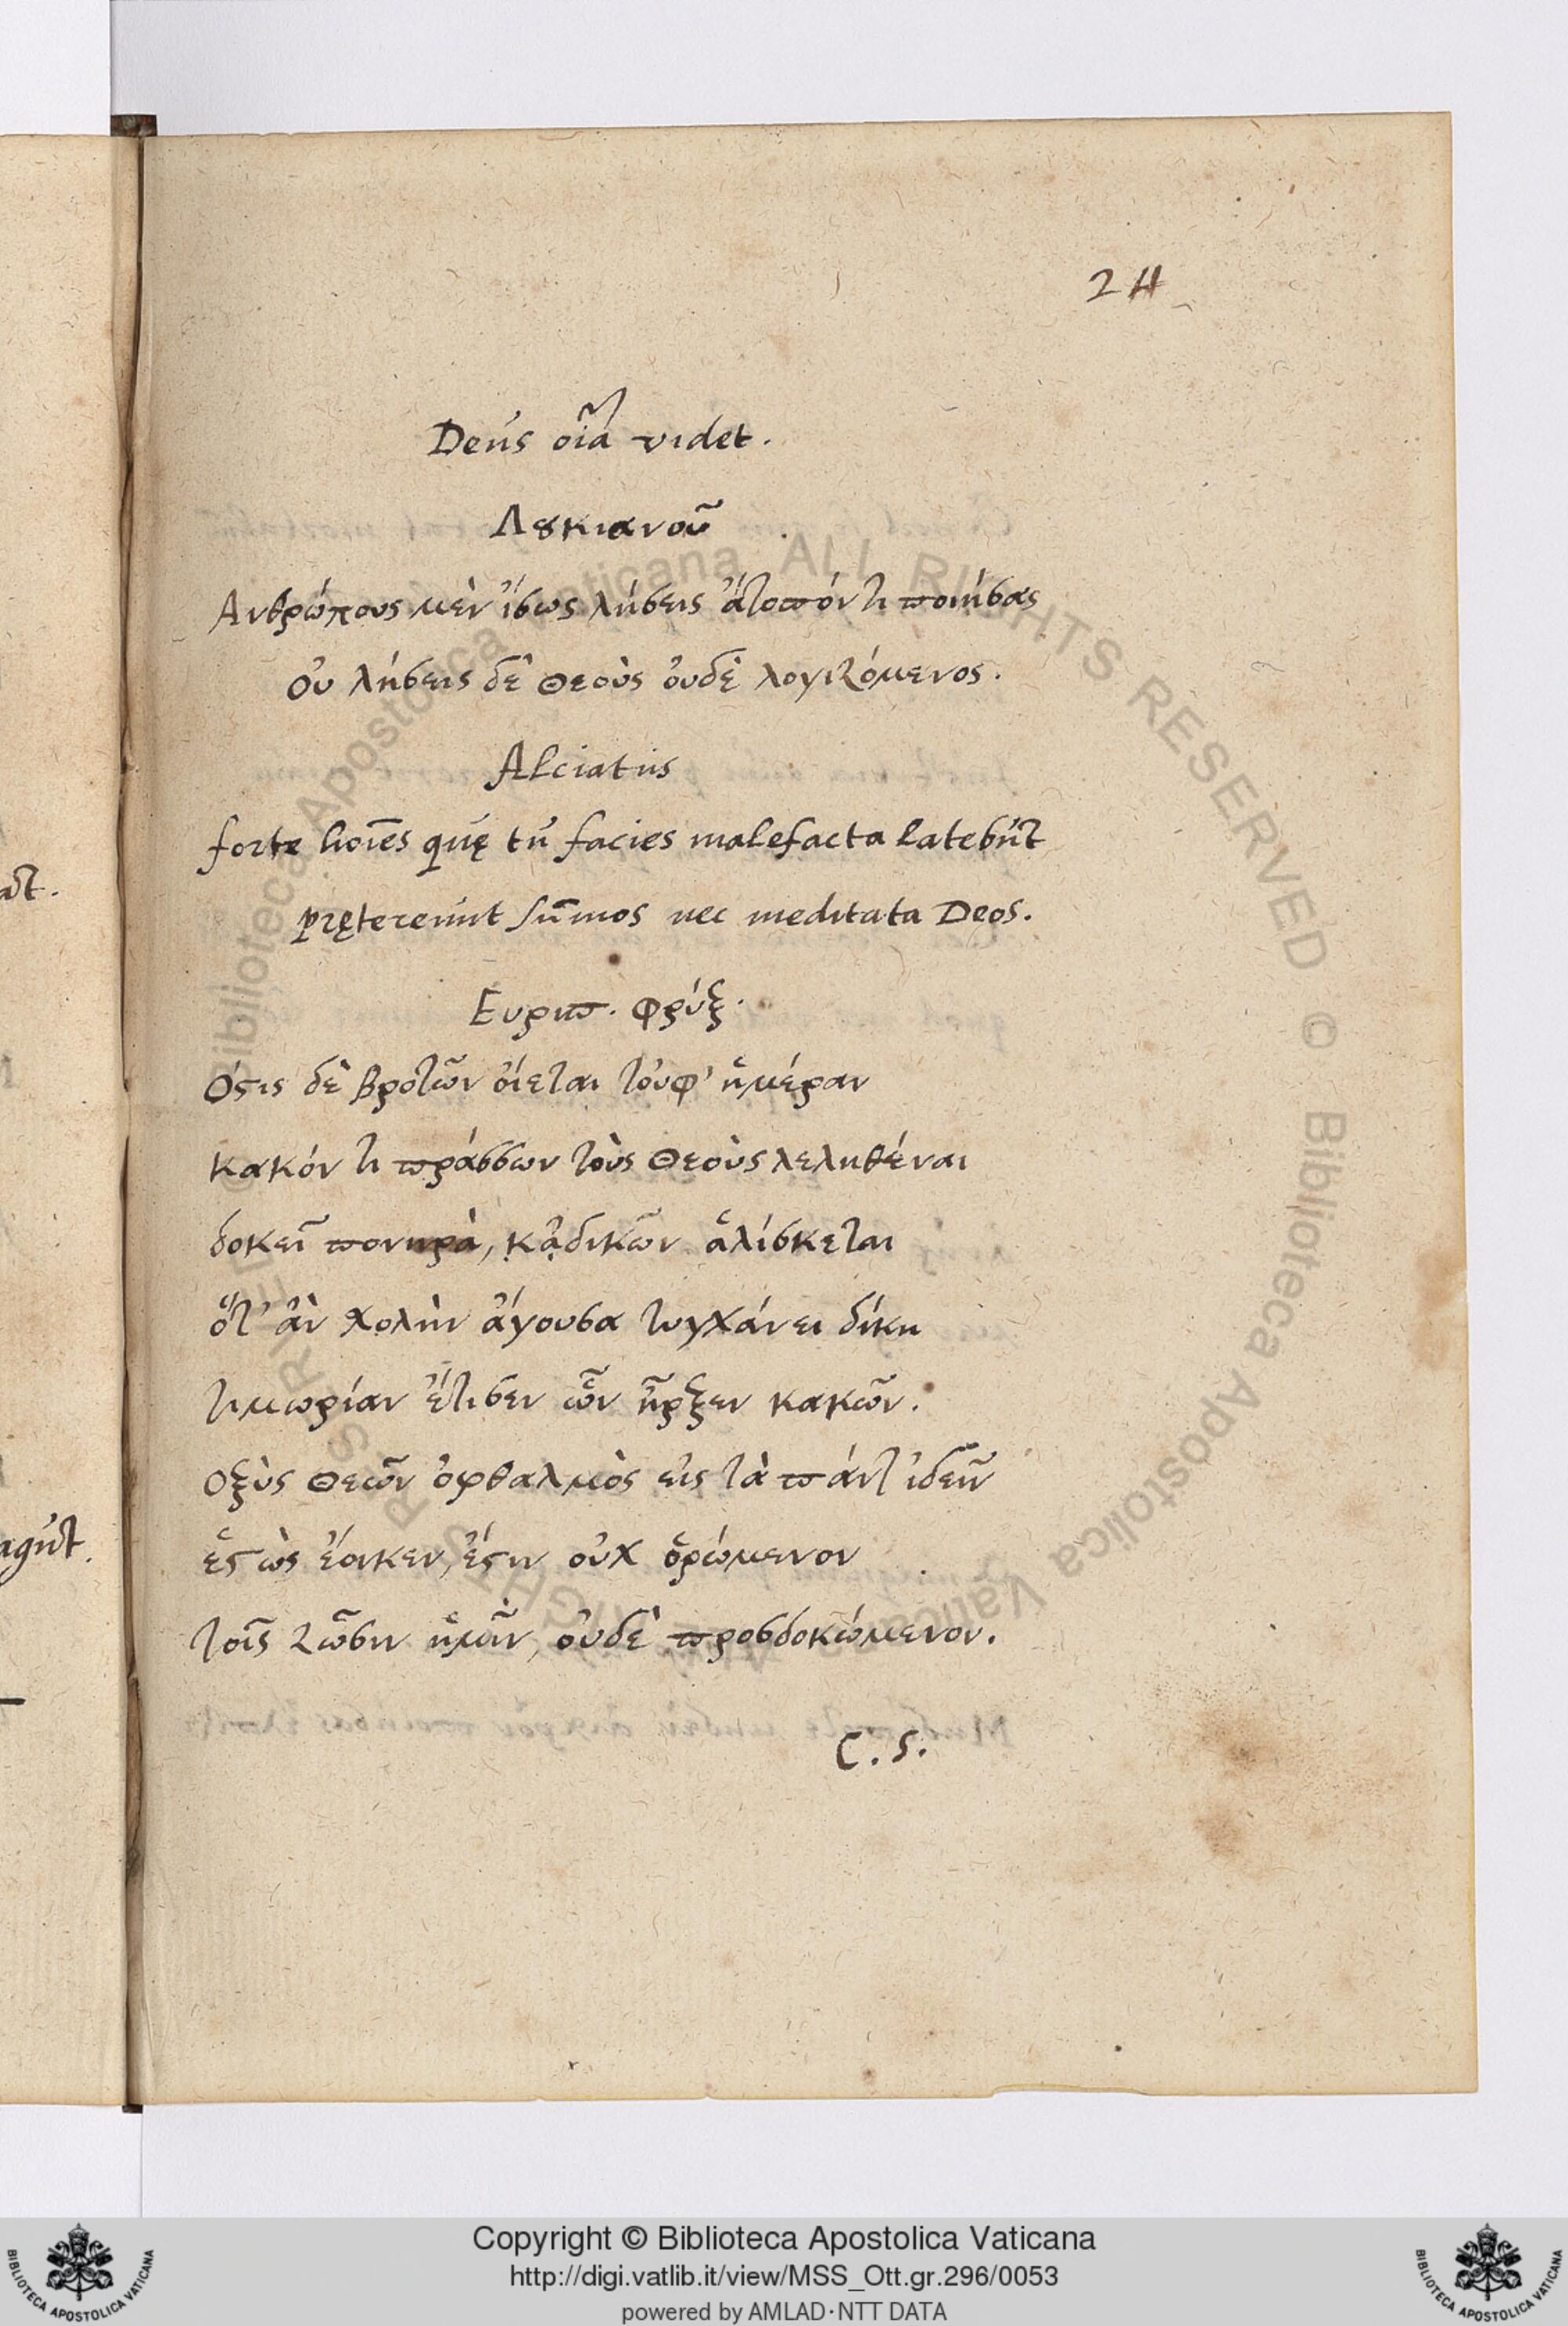 24
Deus oĩa videt.
Λȣκιανοῦ
Ανθρώπους μὲν ἴσως λήσεις ἄτοπόν τι ποιήσας
Οὐ λήσεις δὲ θεοὺς οὐδὲ λογιζόμενος.
Alciatus
forte hoĩes quę tu facies malefacta latebũt
prętereunt sũmos nec meditata Deos.
Ευριπ. Φρύξ.
Ὅϛις δὲ βροτῶν οἴεται τοὐφ' ἡμέραν
κακόν τι πράσσων τοὺς θεοὺς λεληθέναι
δοκεῖ πονηρὰ, κᾀδικῶν ἁλίσκεται
ὅτ' ἂν χολὴν ἄγουσα τυγχάνει δίκη
τιμωρίαν ἔτισεν ὧν ἦρξεν κακῶν.
Οξὺς θεῶν ὀφθαλμὸς εἰς τὰ πάντ ἰδεῖν
ἔϛ ὡς ἔοικεν, ἔϛιν οὐχ ὁρώμενον
τοῖς ζῶσιν ἡμῖν, οὐδὲ προσδοκώμενον.
C. S.
at.
agũt.
Copyright © Biblioteca Apostolica Vaticana
http://digi.vatlib.it/view/MSS_Ott.gr.296/0053
powered by AMLAD·NTT DATA
BIBLIOTECA APOSTOLICA VATICANA
BIBLIOTECA APOSTOLICA VATICANA